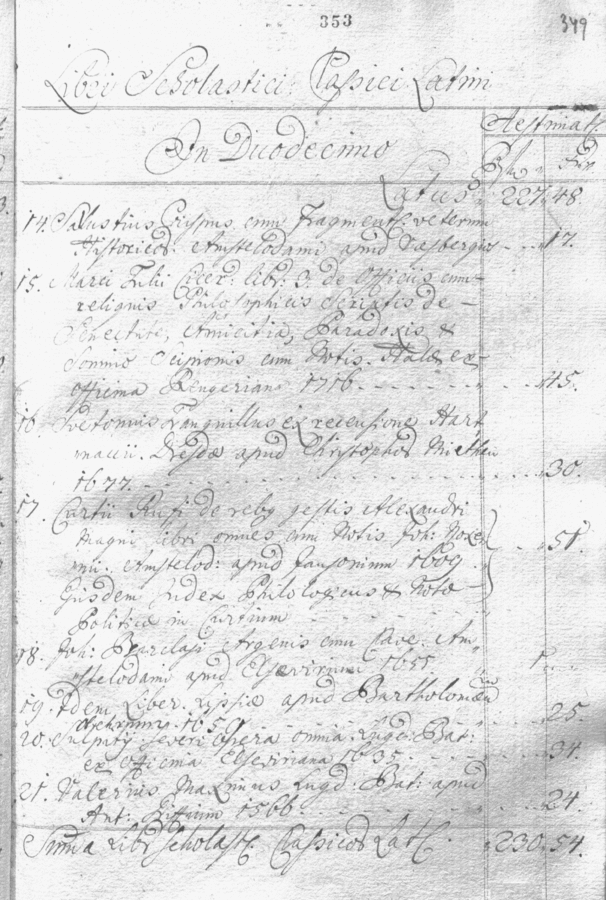 353
349
Libri Scholastici Classici Latini
Aestimat
In Duodecimo
Latus 227 48
14. Salustius Crispus cum Fragment veterum
Historicor. Amstelodami apud 17.
15. Marci Tulii Cicer: libr: 3. de Officiis cum
reliquis Philosophicis Scriptis de
Senectute, Amicitia, Paradoxis &
Somnio Scipionis cum Notis. Halae ex
officina Rengeriana 1716 45.
16. Svetonius Tranquillus ex recensione Hart
maccii. Dresdae apud Christophor Miethen
1677 30.
17. Curtii Rufi de reb9 gestis Alexandri
Magni libri omnes cum Notis Joh:
Amstelod: apud Jansonium 51
Ejusdem Index Philologicus & Nota
Politica in Curtium
18. Joh: Barclaji Argenis cum Clave. Am
stelodami apud Elsevirium 1655 1
19. Idem Liber. Lipsiae apud Bartholomaeum
1659 25.
20. Sulpitii Severi Opera omnia Lugd: Bat:
ex Officina Elseviriana 1635 34.
21. Valerius Maximus Lugd: Bat: apud
Ant: 1566 24
Summa Libr Scholast Classicor Lat 230 54.